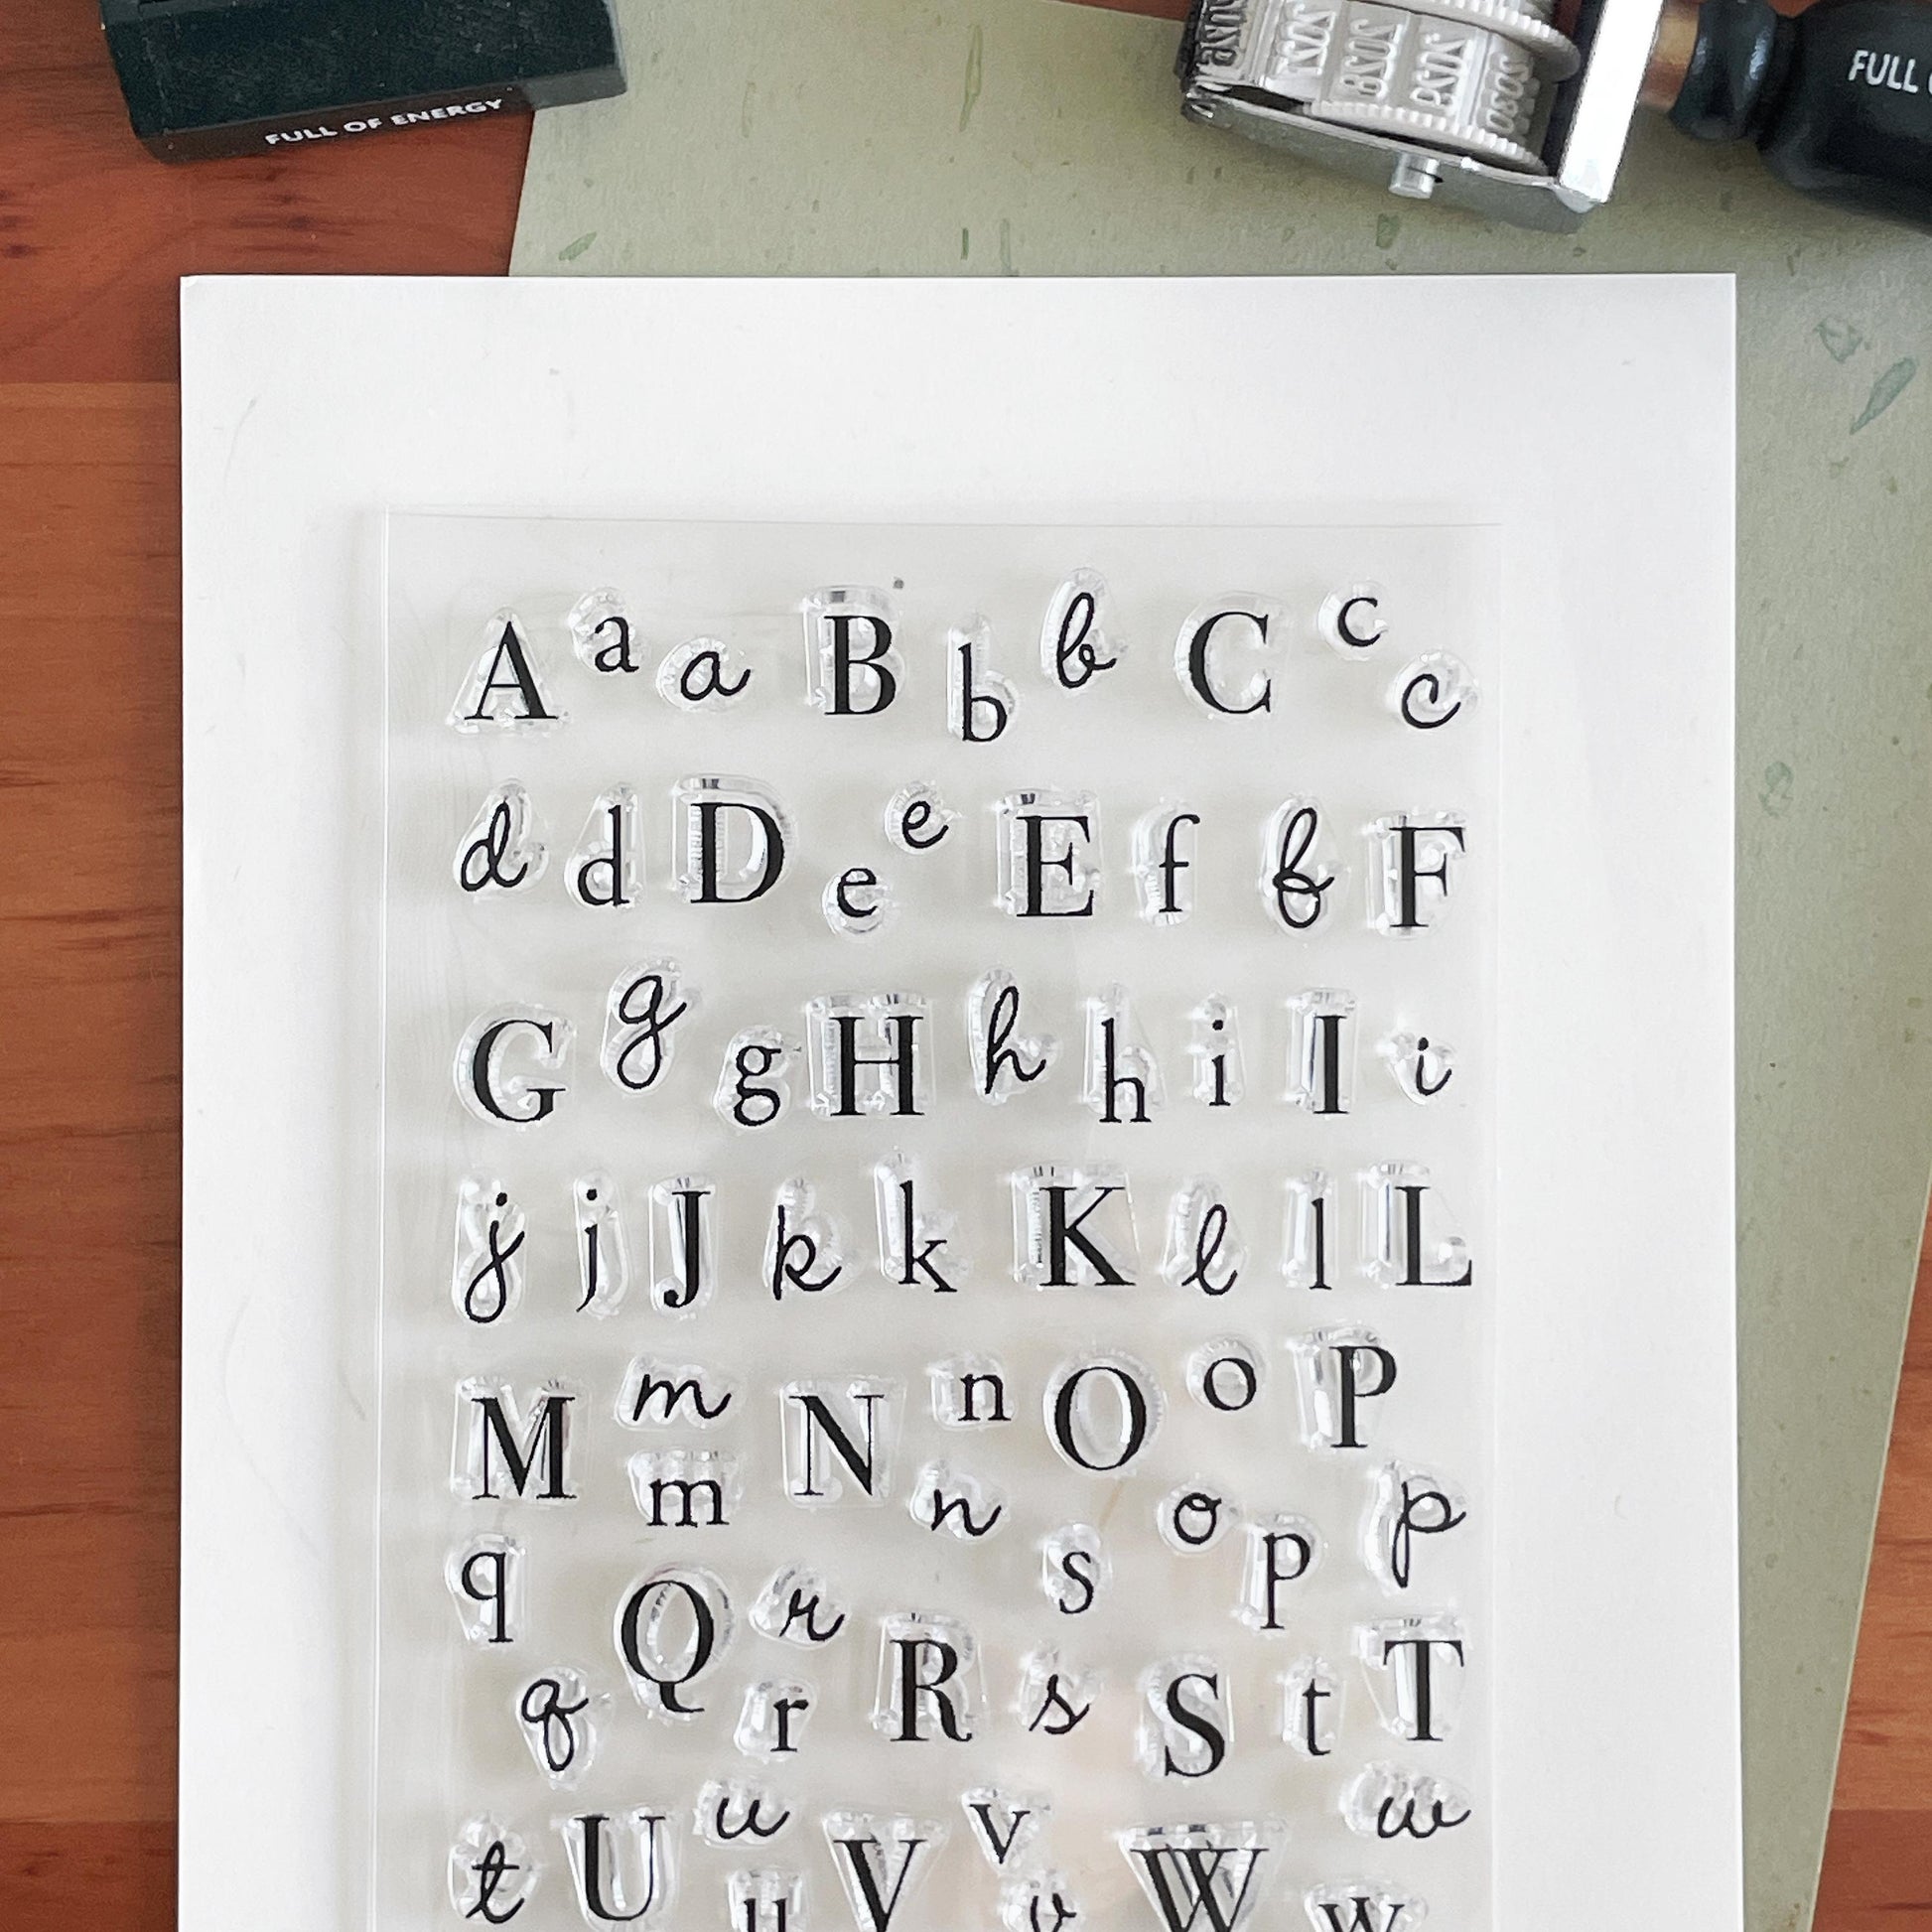 FULL OF ENERGY
FULL
A a a B b b C c c
d d D e e E f f F
G g g H h h i I i
j j J k k K l l L
M m m N n n O o o P p p
q q Q r r R s s S t T
t U u u V v v W w w